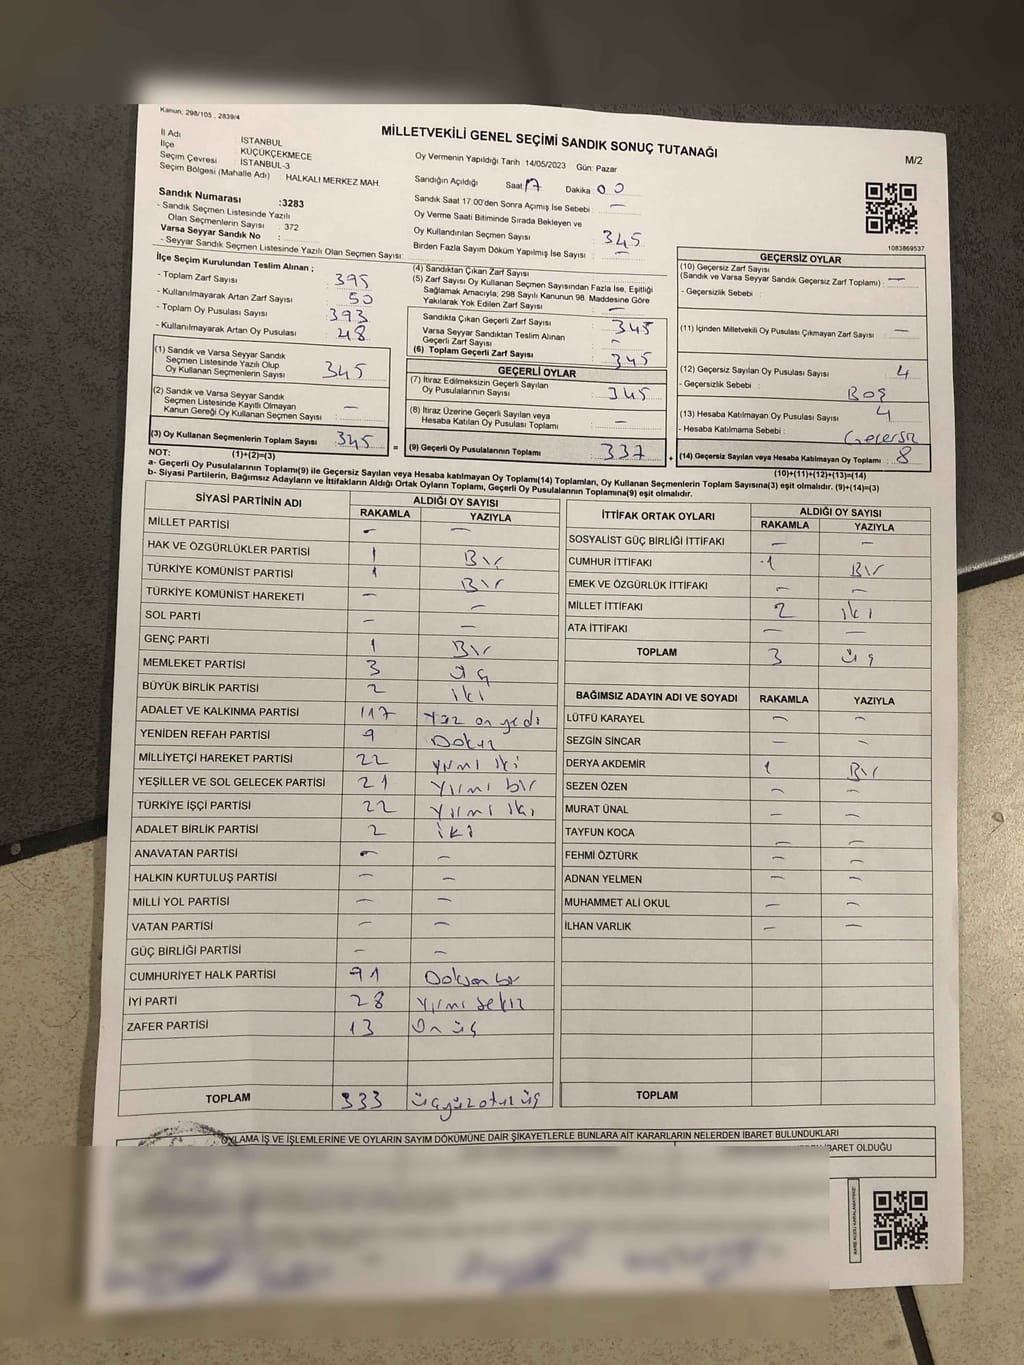 Kanun: 298/105 , 2839/4
MİLLETVEKİLİ GENEL SEÇİMİ SANDIK SONUÇ TUTANAĞI
M/2
İl Adı İSTANBUL
İlçe KÜÇÜKÇEKMECE
Seçim Çevresi İSTANBUL-3
Seçim Bölgesi (Mahalle Adı) HALKALI MERKEZ MAH.
Sandık Numarası :3283
- Sandık Seçmen Listesinde Yazılı
Olan Seçmenlerin Sayısı : 372
Varsa Seyyar Sandık No :
- Seyyar Sandık Seçmen Listesinde Yazılı Olan Seçmen Sayısı:
Oy Vermenin Yapıldığı Tarih :14/05/2023 Gün: Pazar
Sandığın Açıldığı Saat 17 Dakika 00
Sandık Saat 17:00'den Sonra Açımış İse Sebebi : —
Oy Verme Saati Bitiminde Sırada Bekleyen ve
Oy Kullandırılan Seçmen Sayısı : 345
Birden Fazla Sayım Döküm Yapılmış İse Sayısı : —
1083869537
İlçe Seçim Kurulundan Teslim Alınan ;
- Toplam Zarf Sayısı : 395
- Kullanılmayarak Artan Zarf Sayısı : 50
- Toplam Oy Pusulası Sayısı : 393
- Kullanılmayarak Artan Oy Pusulası : 48
(1) Sandık ve Varsa Seyyar Sandık
Seçmen Listesinde Yazılı Olup
Oy Kullanan Seçmenlerin Sayısı : 345
(2) Sandık ve Varsa Seyyar Sandık
Seçmen Listesinde Kayıtlı Olmayan
Kanun Gereği Oy Kullanan Seçmen Sayısı : —
(3) Oy Kullanan Seçmenlerin Toplam Sayısı : 345
(1)+(2)=(3)
(4) Sandıktan Çıkan Zarf Sayısı :
(5) Zarf Sayısı Oy Kullanan Seçmen Sayısından Fazla İse, Eşitliği
Sağlamak Amacıyla; 298 Sayılı Kanunun 98. Maddesine Göre
Yakılarak Yok Edilen Zarf Sayısı : —
Sandıkta Çıkan Geçerli Zarf Sayısı : 345
Varsa Seyyar Sandıktan Teslim Alınan
Geçerli Zarf Sayısı : —
(6) Toplam Geçerli Zarf Sayısı : 345
GEÇERLİ OYLAR
(7) İtiraz Edilmeksizin Geçerli Sayılan
Oy Pusulalarının Sayısı : 345
(8) İtiraz Üzerine Geçerli Sayılan veya
Hesaba Katılan Oy Pusulası Toplamı : —
= (9) Geçerli Oy Pusulalarının Toplamı : 337
GEÇERSİZ OYLAR
(10) Geçersiz Zarf Sayısı
(Sandık ve Varsa Seyyar Sandık Geçersiz Zarf Toplamı) : —
- Geçersizlik Sebebi :
(11) İçinden Milletvekili Oy Pusulası Çıkmayan Zarf Sayısı : —
(12) Geçersiz Sayılan Oy Pusulası Sayısı : 4
- Geçersizlik Sebebi : Boş
(13) Hesaba Katılmayan Oy Pusulası Sayısı : 4
- Hesaba Katılmama Sebebi : Geçersiz
+ (14) Geçersiz Sayılan veya Hesaba Katılmayan Oy Toplamı : 8
(10)+(11)+(12)+(13)=(14)
NOT:
a- Geçerli Oy Pusulalarının Toplamı(9) ile Geçersiz Sayılan veya Hesaba katılmayan Oy Toplamı(14) Toplamları, Oy Kullanan Seçmenlerin Toplam Sayısına(3) eşit olmalıdır. (9)+(14)=(3)
b- Siyasi Partilerin, Bağımsız Adayların ve İttifakların Aldığı Ortak Oyların Toplamı, Geçerli Oy Pusulalarının Toplamına(9) eşit olmalıdır.
SİYASİ PARTİNİN ADI ALDIĞI OY SAYISI
RAKAMLA YAZIYLA
MİLLET PARTİSİ — —
HAK VE ÖZGÜRLÜKLER PARTİSİ 1 Bir
TÜRKİYE KOMÜNİST PARTİSİ 1 Bir
TÜRKİYE KOMÜNİST HAREKETİ — —
SOL PARTİ — —
GENÇ PARTİ 1 Bir
MEMLEKET PARTİSİ 3 üç
BÜYÜK BİRLİK PARTİSİ 2 iki
ADALET VE KALKINMA PARTİSİ 117 Yüz on yedi
YENİDEN REFAH PARTİSİ 9 Dokuz
MİLLİYETÇİ HAREKET PARTİSİ 22 yirmi iki
YEŞİLLER VE SOL GELECEK PARTİSİ 21 Yirmi bir
TÜRKİYE İŞÇİ PARTİSİ 22 Yirmi iki
ADALET BİRLİK PARTİSİ 2 iki
ANAVATAN PARTİSİ — —
HALKIN KURTULUŞ PARTİSİ — —
MİLLİ YOL PARTİSİ — —
VATAN PARTİSİ — —
GÜÇ BİRLİĞİ PARTİSİ — —
CUMHURİYET HALK PARTİSİ 91 Doksan bir
İYİ PARTİ 28 Yirmi sekiz
ZAFER PARTİSİ 13 On üç
TOPLAM 333 üçyüz otuz üç
İTTİFAK ORTAK OYLARI ALDIĞI OY SAYISI
RAKAMLA YAZIYLA
SOSYALİST GÜÇ BİRLİĞİ İTTİFAKI — —
CUMHUR İTTİFAKI 1 Bir
EMEK VE ÖZGÜRLÜK İTTİFAKI — —
MİLLET İTTİFAKI 2 iki
ATA İTTİFAKI — —
TOPLAM 3 üç
BAĞIMSIZ ADAYIN ADI VE SOYADI RAKAMLA YAZIYLA
LÜTFÜ KARAYEL — —
SEZGİN SİNCAR — —
DERYA AKDEMİR 1 Bir
SEZEN ÖZEN — —
MURAT ÜNAL — —
TAYFUN KOCA — —
FEHMİ ÖZTÜRK — —
ADNAN YELMEN — —
MUHAMMET ALİ OKUL — —
İLHAN VARLIK — —
TOPLAM
OYLAMA İŞ VE İŞLEMLERİNE VE OYLARIN SAYIM DÖKÜMÜNE DAİR ŞİKAYETLERLE BUNLARA AİT KARARLARIN NELERDEN İBARET BULUNDUKLARI
İBARET OLDUĞU